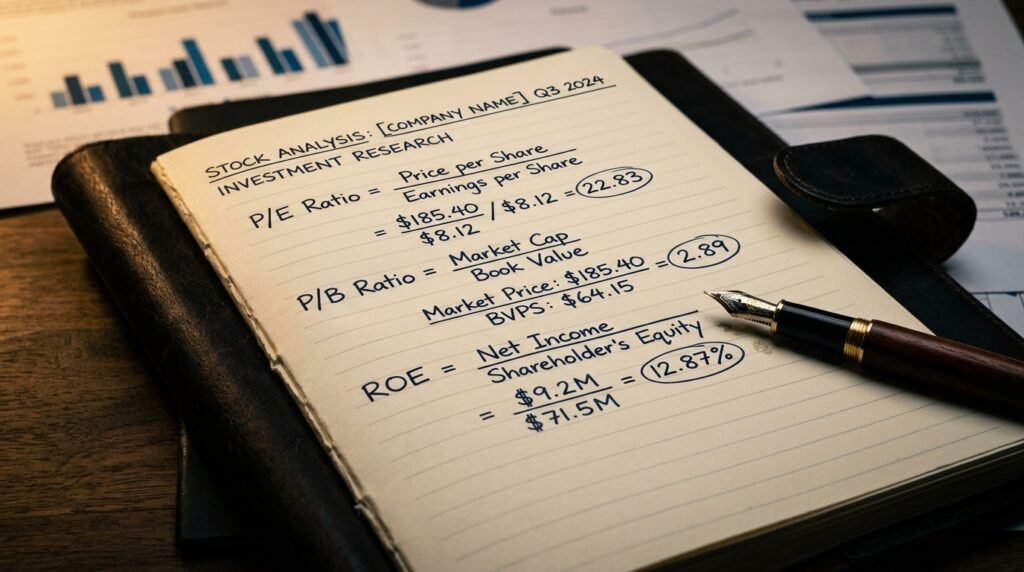 STOCK ANALYSIS: [COMPANY NAME] Q3 2024
INVESTMENT RESEARCH
P/E Ratio = Price per Share / Earnings per Share
= $185.40 / $8.12 / $8.12 = 22.83
P/B Ratio = Market Cap / Book Value
Market Price: $185.40 / BVPS: $64.15 = 2.89
ROE = Net Income / Shareholder's Equity
= $9.2M / $71.5M = 12.87%